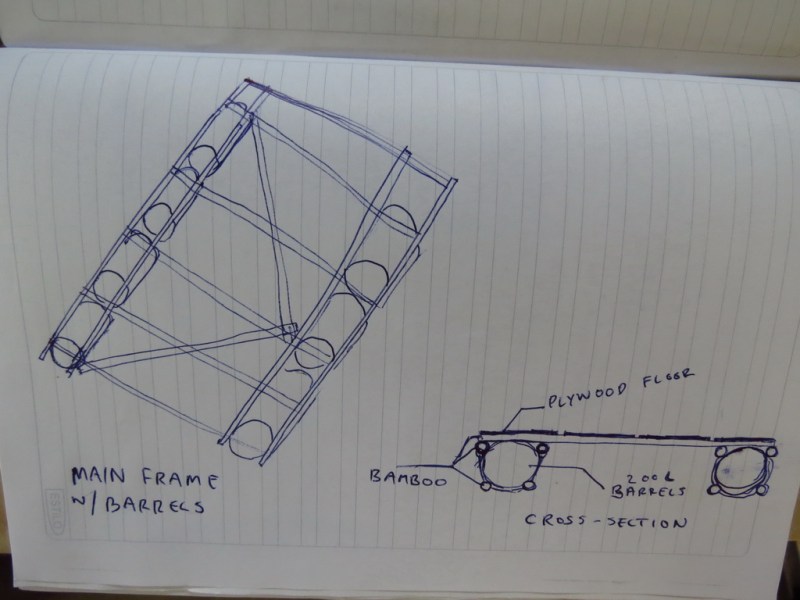 PLYWOOD FLOOR
MAIN FRAME
W/BARRELS
BAMBOO
200L
BARRELS
CROSS-SECTION